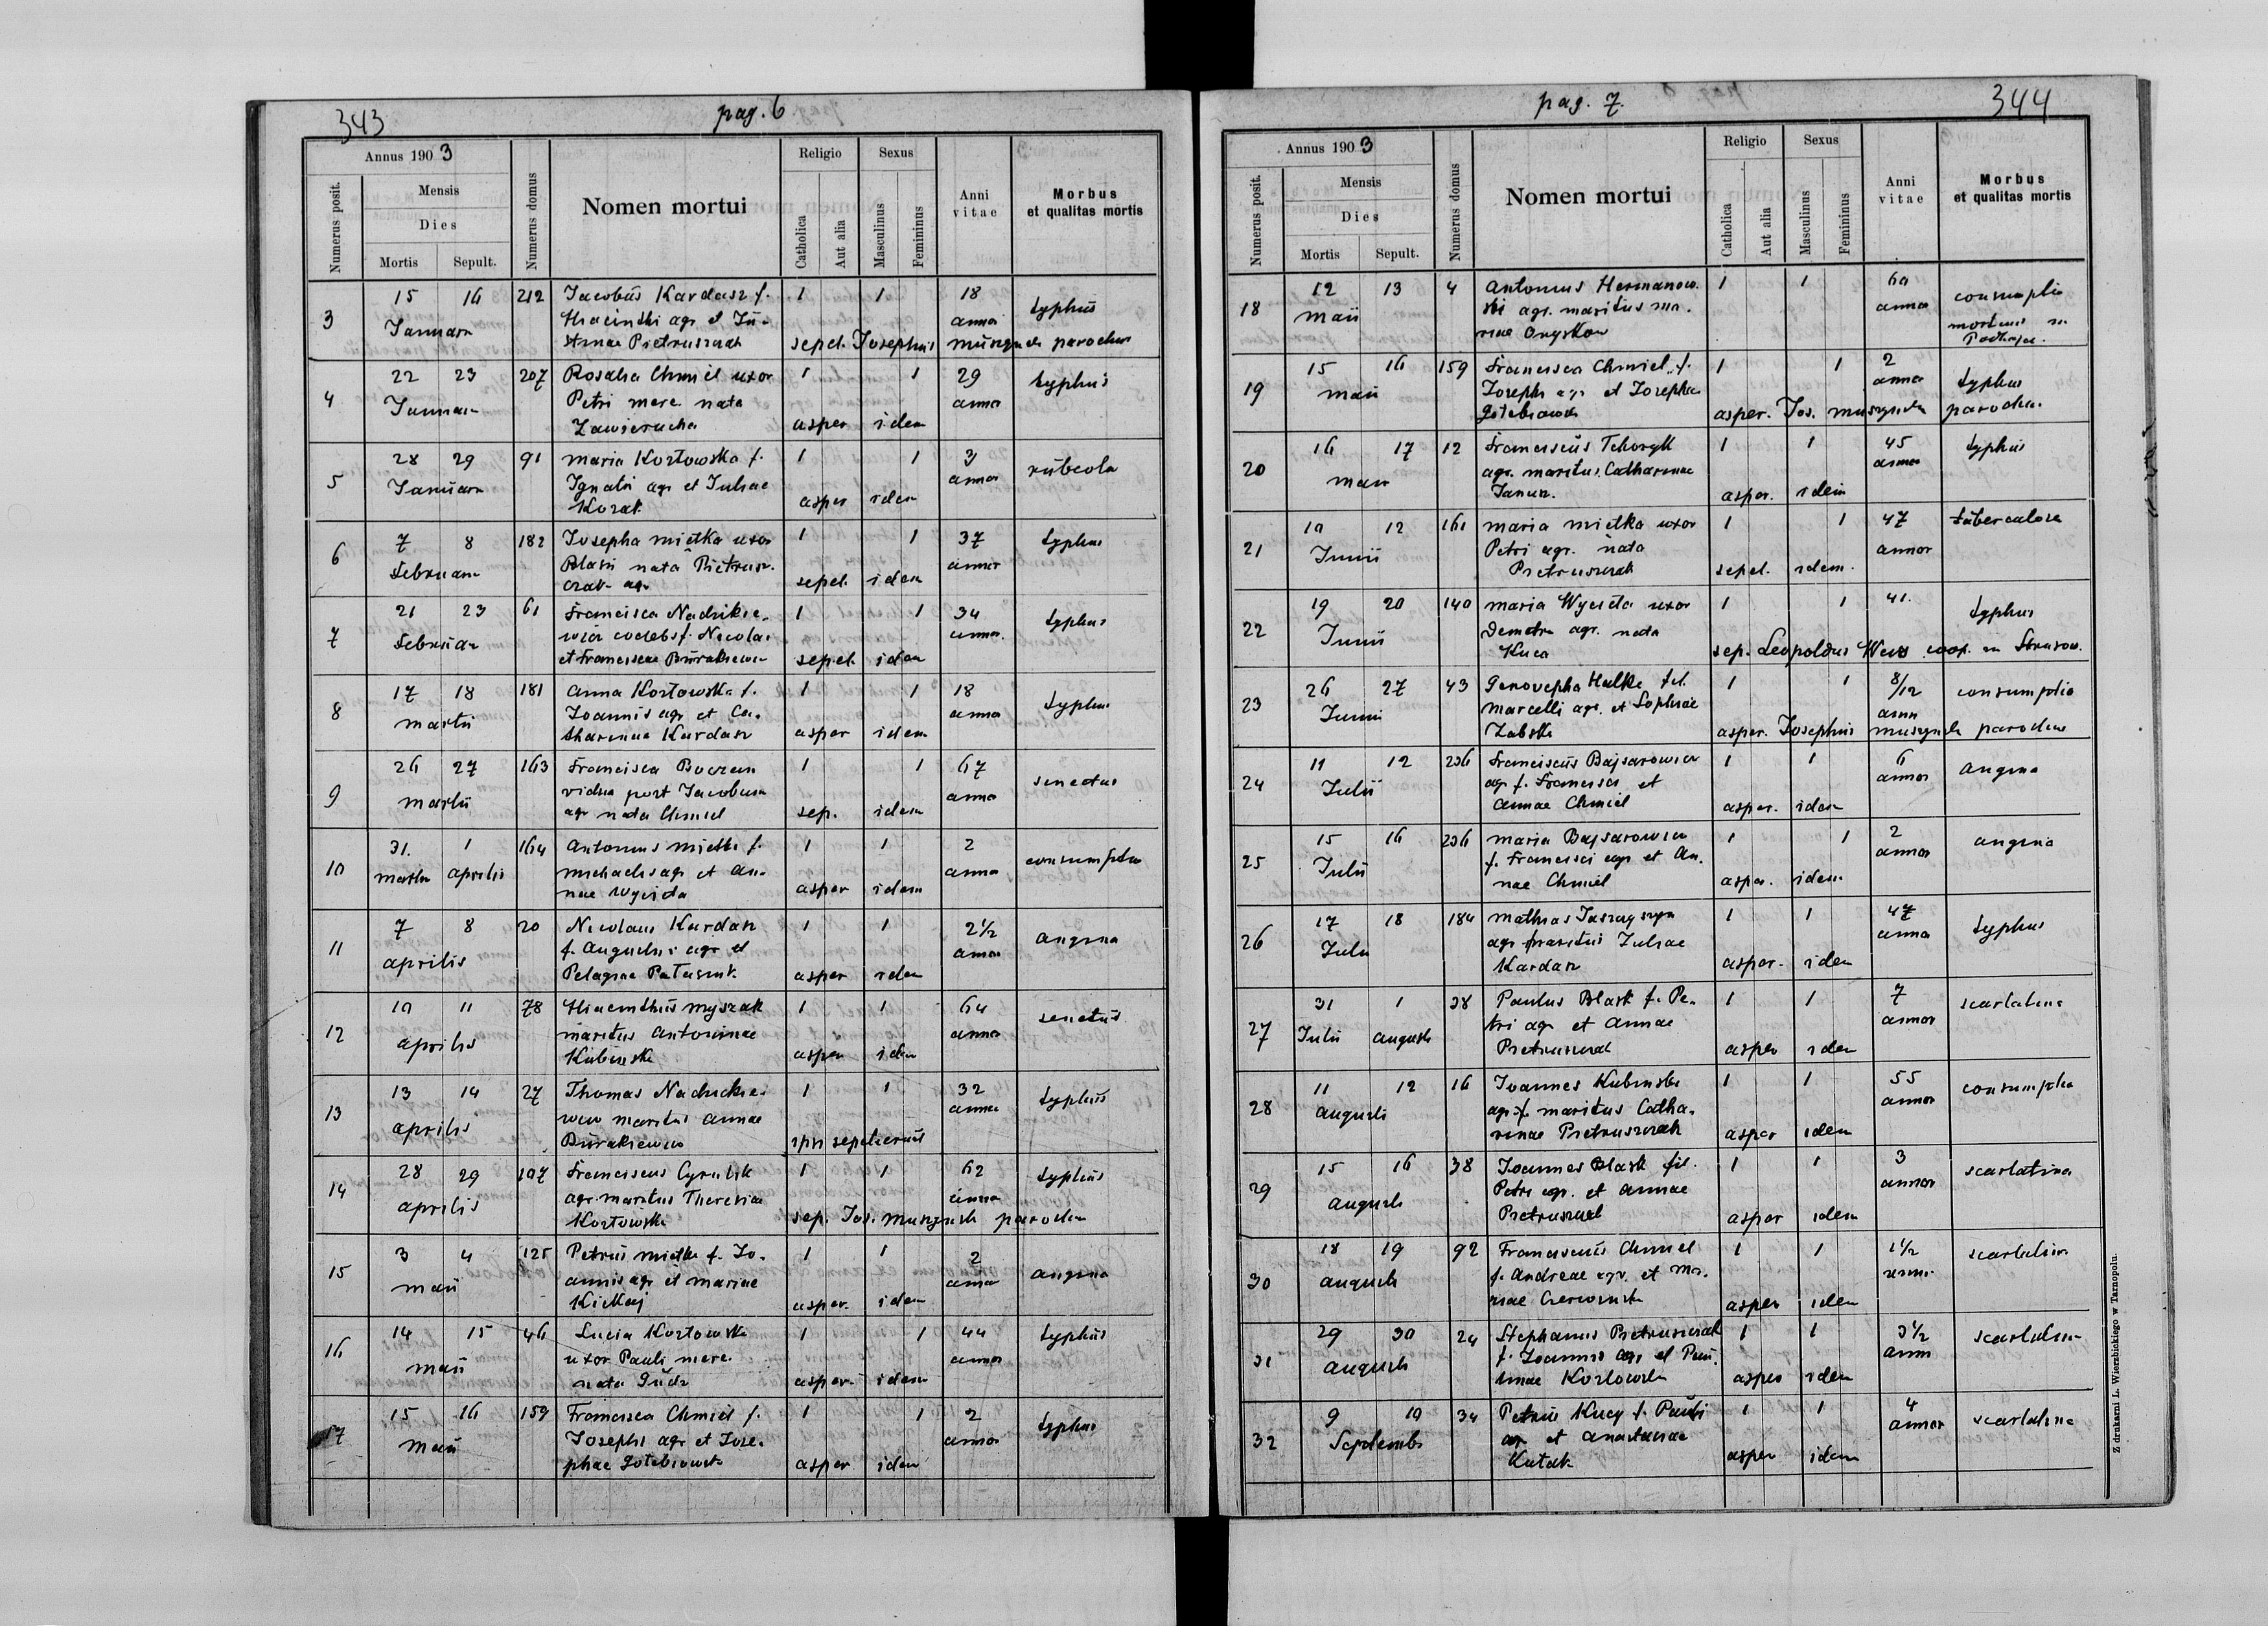 343
pag. 6
Annus 1903
Numerus posit.
Mensis
Dies
Mortis Sepult.
Numerus domus
Nomen mortui
Religio
Catholica
Aut alia
Sexus
Masculinus
Femininus
Anni vitae
Morbus et qualitas mortis
3 15 16 Januarii 212 Jacobus Kardasz f. 1 1 18 annor typhus
Hiacinthi agr et Ju-
stinae Pietruszczak sepel. Josephus parochus
4 22 23 Januarii 207 Rosalia Chmiel uxor 1 1 29 annor typhus
Petri merc. nata
Zawierucha asper idem
5 28 29 Januarii 91 Maria Kozłowska f. 1 1 3 annor rubeola
Ignatii agr et Juliae
Kozak asper idem
6 7 8 Februarii 182 Josepha Mielka uxor 1 1 37 annor typhus
Blasii nata Pietrusz-
czak agr sepel. idem
7 21 23 Februar 61 Francisca Nadzikie- 1 1 34 annor. typhus
wicz coelebs f. Nicolai
et Franciscae Burakiewicz sepel. idem
8 17 18 Martii 181 Anna Kozłowska f. 1 1 18 annor typhus
Joannis agr et Ca-
tharinae Kardasz asper idem
9 26 27 Martii 163 Francisca 1 1 67 annor senectus
vidua post Jacobum
agr nata Chmiel sep. idem
10 31. 1 Martii aprilis 164 Antonius Mielka f. 1 1 2 annor consumptio
Michaelis agr et An-
nae Wycisla asper idem
11 7 8 aprilis 20 Nicolaus Kardasz 1 1 2½ annor angina
f. Augustini agr et
Pelagiae asper idem
12 10 11 aprilis 78 Hiacinthus Myszak 1 1 64 annor senectus
maritus Antoninae
Kubinska asper idem
13 13 14 aprilis 27 Thomas Nadzikie- 1 1 32 annor typhus
wicz maritus Annae
Burakiewicz ipsi sepelierunt
14 28 29 aprilis 107 Franciscus Cyrulik 1 1 62 annor typhus
agr. maritus Theresiae
Kozłowska sep. Jos. parochus
15 3 4 Maii 125 Petrus Mielka f. Jo- 1 1 2 annor angina
annis agr et Mariae
asper. idem
16 14 15 Maii 46 Lucia Kozłowska 1 1 44 annor typhus
uxor Pauli merc.
nata Gudz asper. idem
17 15 16 Maii 159 Francisca Chmiel f. 1 1 2 annor typhus
Josephi agr et Jose-
phae Gołebiowska asper idem
pag. 7.
344
Annus 1903
Numerus posit.
Mensis
Dies
Mortis Sepult.
Numerus domus
Nomen mortui
Religio
Catholica
Aut alia
Sexus
Masculinus
Femininus
Anni vitae
Morbus et qualitas mortis
18 12 13 Maii 4 Antonius Hermanow- 1 1 60 annor consumptio
ski agr. maritus Ma-
riae Onyskow mortuus in
19 15 16 Maii 159 Francisca Chmiel f. 1 1 2 annor typhus
Josephi agr et Josephae
Gołebiowska asper. Jos. parochus
20 16 17 Maii 12 Franciscus Tchoryk 1 1 45 annor typhus
agr. maritus Catharinae
Janusz. asper. idem
21 10 12 Junii 161 Maria Mielka uxor 1 1 47 annor tuberculosa
Petri agr. nata
Pietruszczak sepel. idem.
22 19 20 Junii 140 Maria Wycisla uxor 1 1 41. typhus
Demetri agr. nata
Kuca sep. Leopoldus coop. in Strusow.
23 26 27 Junii 43 Genovepha Halka fil. 1 1 8/12 anni consumptio
Marcelli agr. et Sophiae
Zabska asper. Josephus parochus
24 11 12 Julii 206 Franciscus Bajsarowicz 1 1 6 annor angina
agr f. Francisci et
Annae Chmiel asper. idem
25 15 16 Julii 206 Maria Bajsarowicz 1 1 2 annor angina
f. Francisci agr et An-
nae Chmiel asper. idem
26 17 18 Julii 184 Mathias Jaszczyszyn 1 1 47 annor typhus
agr maritus Juliae
Kardasz asper. idem
27 31 1 Julii augusti 38 Paulus Blask f. Pe- 1 1 7 annor scarlatina
tri agr et Annae
Pietruszczak asper idem
28 11 12 augusti 16 Joannes Kubinski 1 1 55 annor consumptio
agr. maritus Catha-
rinae Pietruszczak asper idem
29 15 16 augusti 38 Joannes Blask fil. 1 1 3 annor scarlatina
Petri agr. et Annae
Pietruszczak asper idem
30 18 19 augusti 92 Franciscus Chmiel 1 1 1½ scarlatina
f. Andreae agr. et Ma-
riae Czerwinska asper idem
31 29 30 augusti 24 Stephanus Pietruszczak 1 1 3½ anni scarlatina
f. Joannis agr et Pau-
linae Kozłowska asper idem
32 9 10 Septembr 34 Petrus Kucy f. Pauli 1 1 4 annor scarlatina
agr et Anastasiae
Kutak asper idem
Z drukarni L. Wierzbickiego w Tarnopolu.